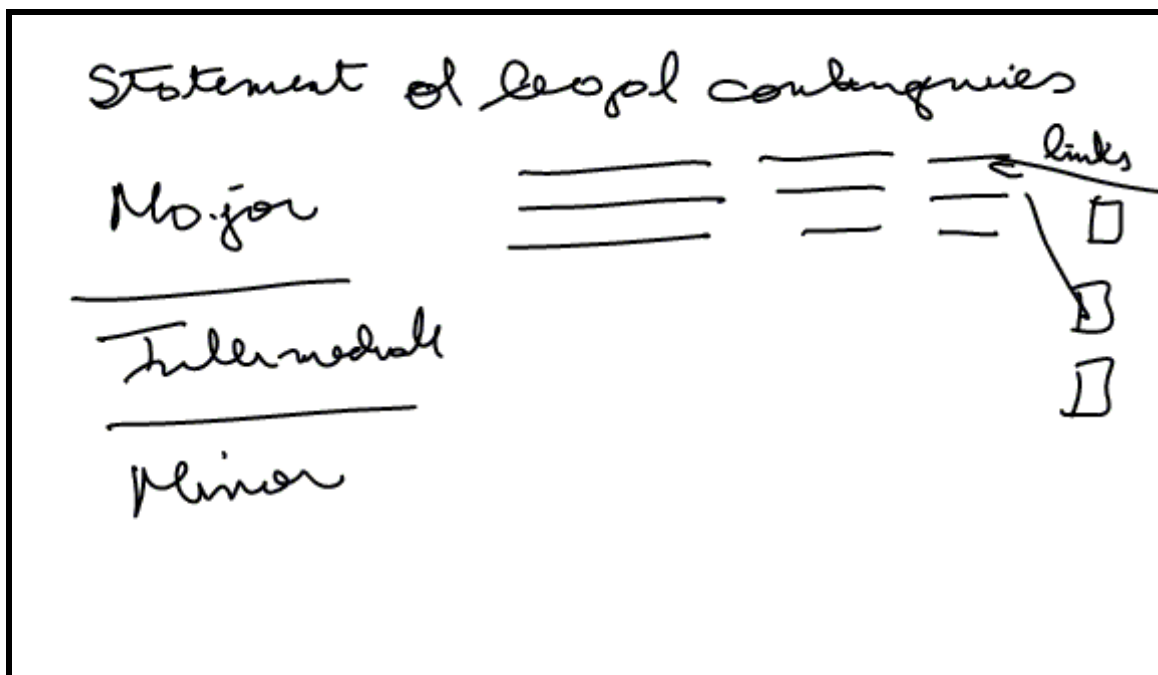 Statement of legal contingencies
links
Major
Intermediate
Minor